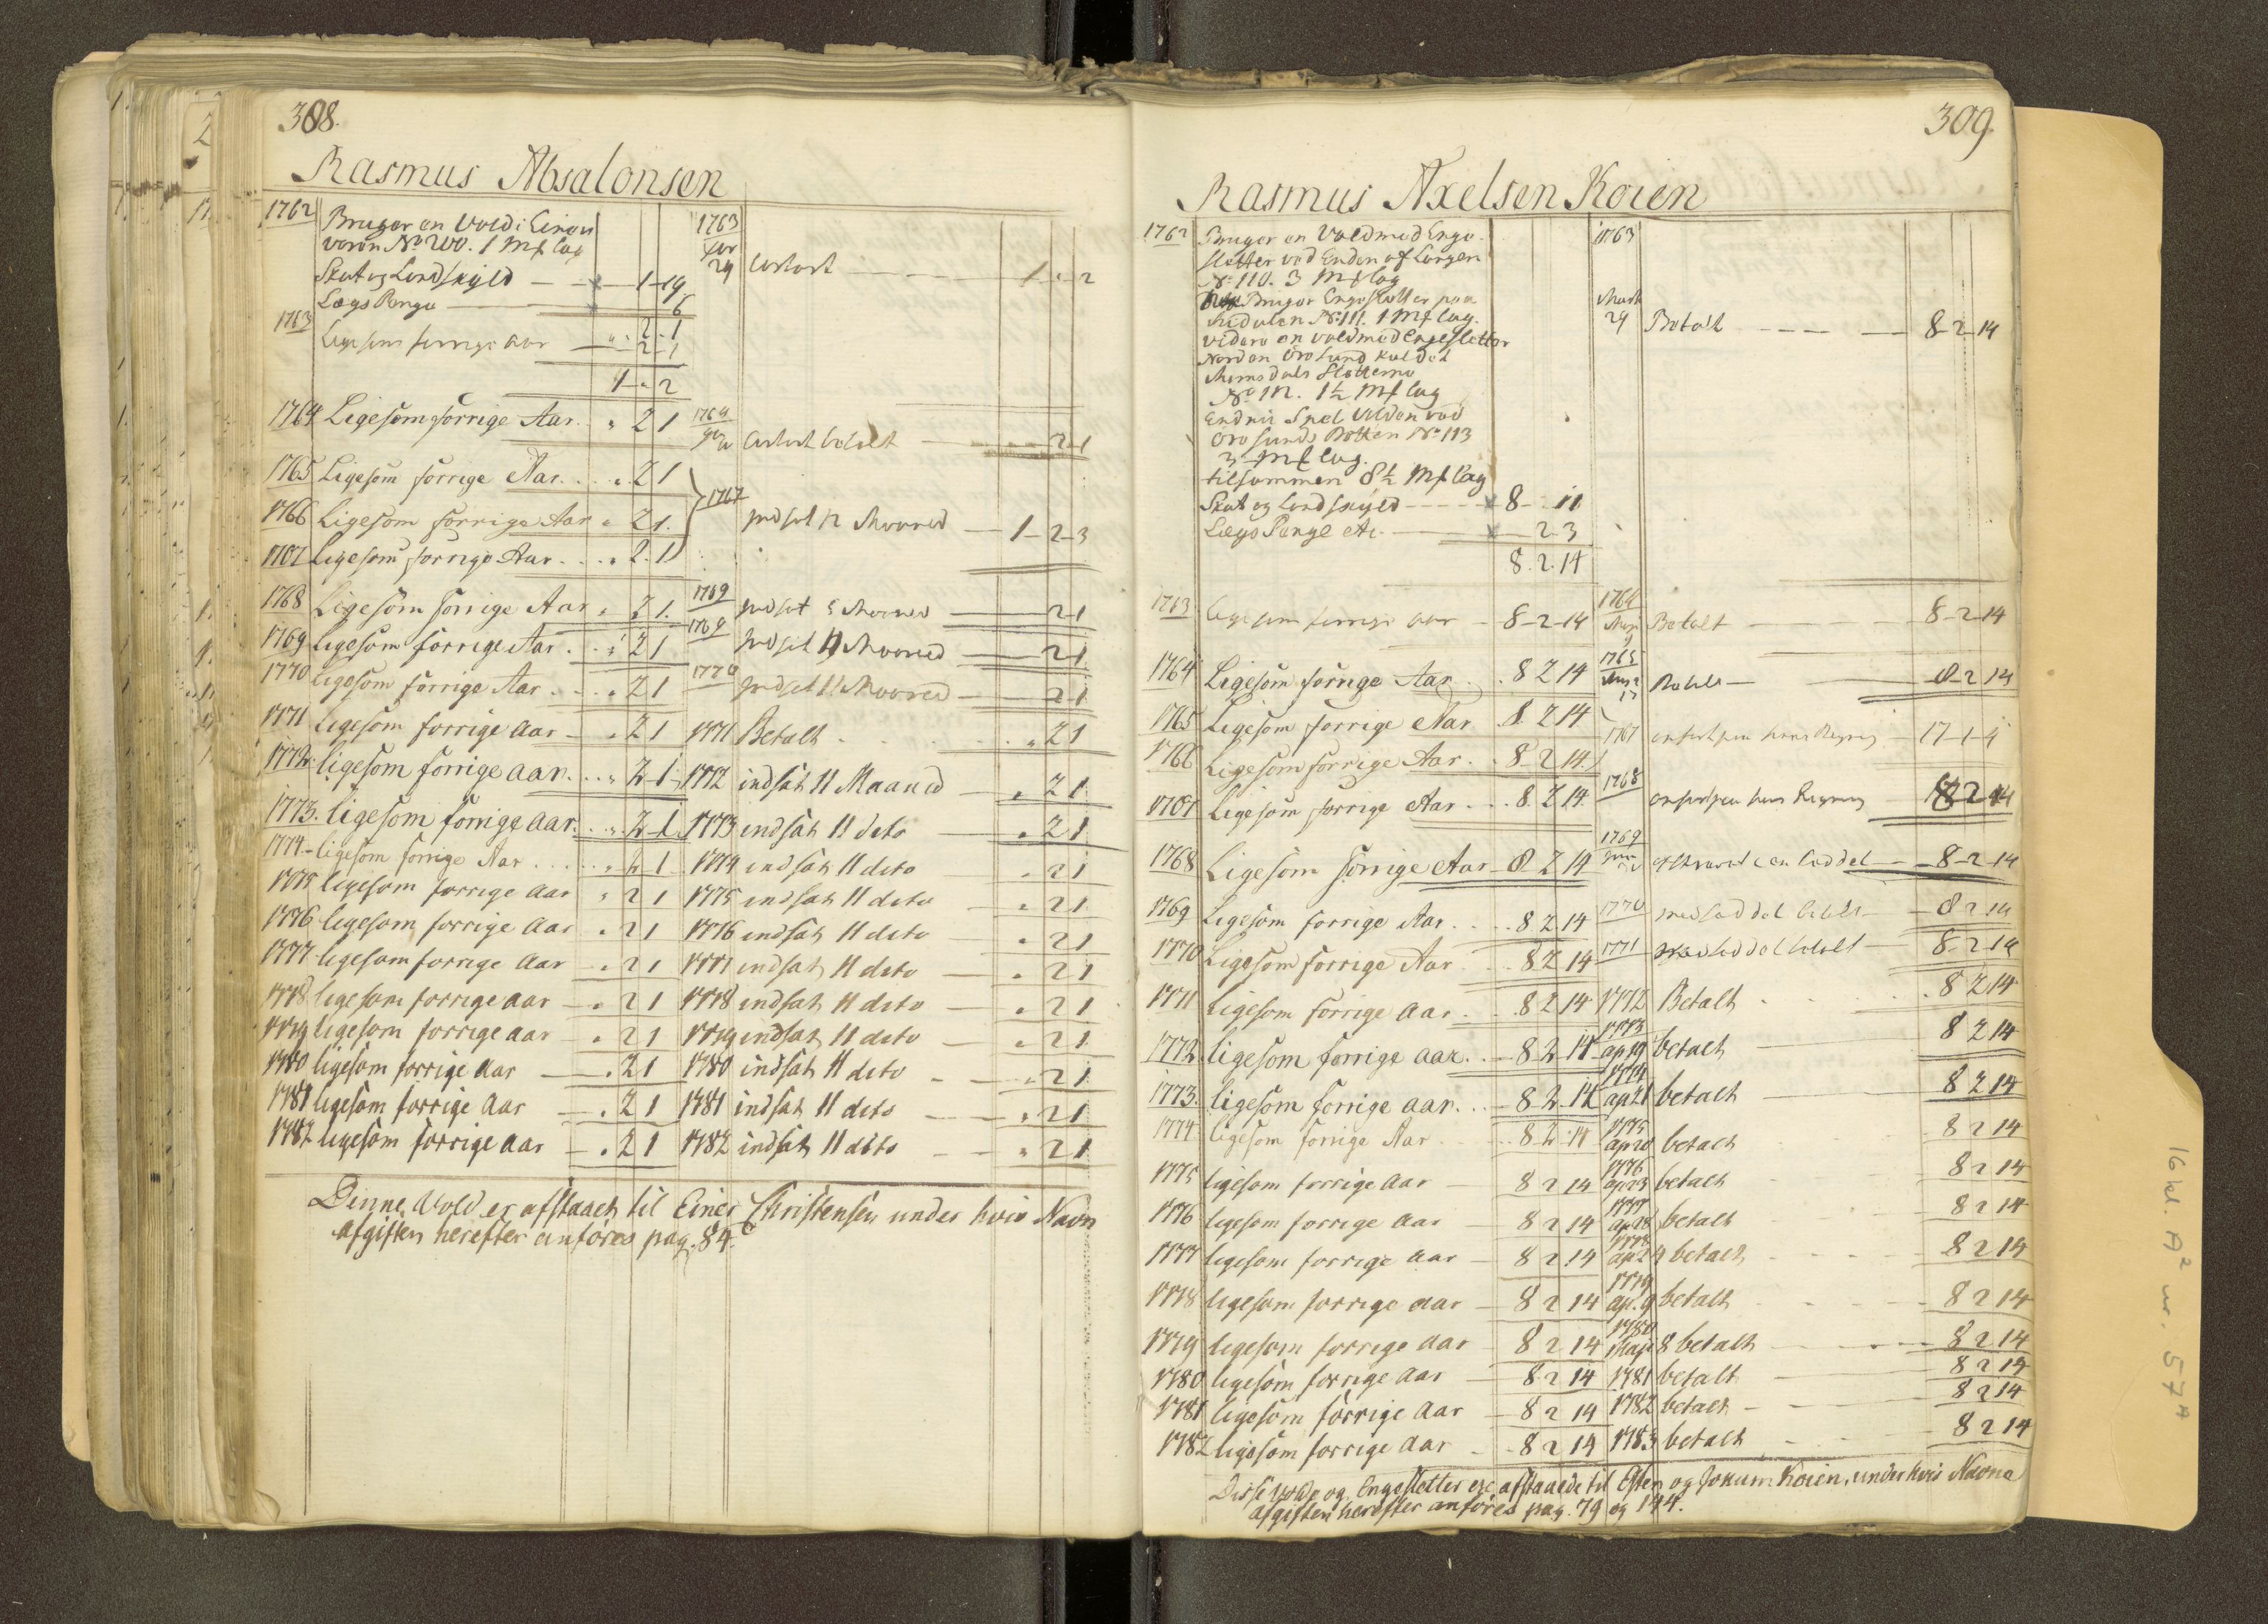 308.
Rasmus Absalonsen
1762 Bruger en Vold i Einou
voren No 200. 1 Mk lag
Skat og Landskyld — 1 - 19
Lægs Penge — 6
2 - 1
1763 Ligesom forrige Aar — " - 2 - 1
1 - " - 2
1764 Ligesom forrige Aar. " 2 1
1765 Ligesom forrige Aar. . . " 2 1
1766 Ligesom forrige Aar " 2 1.
1767 Ligesom forrige Aar. . . " 2. 1
1768 Ligesom forrige Aar " 2 1.
1769 ligesom forrige Aar. " 2 1
1770 ligesom forrige Aar. . . " 2 1
1771 ligesom forrige aar - " 2 1
1772. ligesom forrige aar. . . " 2 1
1773. ligesom forrige aar. . . " 2 1
1774. ligesom forrige Aar . . . . " 2 1
1775 ligesom forrige aar " 2 1
1776 ligesom forrige aar " 2 1
1777 ligesom forrige aar - " 2 1
1778 ligesom forrige aar - " 2 1
1779 ligesom forrige aar - " 2 1
1780 ligesom forrige aar — " 2 1
1781 ligesom forrige aar — " 2 1
1782 ligesom forrige aar — " 2 1
1763
29 — 1 - " - 2
1764
betalt — 2 1
1767 indsat 12 Maaned — 1 - 2 - 3
1769 indsat Maaned — 2 1
1769 indsat 11 Maaned — 2 1
1770 indsat 11 Maaned — 2 1
1771 Betalt . . . " 2 1
1772 indsat 11 Maaned — " 2 1
1773 indsat 11 dito — " 2 1
1774 indsat 11 dito " 2 1
1775 indsat 11 dito — " 2 1
1776 indsat 11 dito — " 2 1
1777 indsat 11 dito — " 2 1
1778 indsat 11 dito — " 2 1
1779 indsat 11 dito — " 2 1
1780 indsat 11 dito - — " 2 1
1781 indsat 11 dito — — " 2 1
1782 indsat 11 dito — — " 2 1
Denne Vold er afstaaet til Einer Christensen under hvis Navn
afgiften herefter anføres pag. 84.
309.
Rasmus Axelsen Koien
1762 Bruger en Vold med Enge
sletter ved Enden af Langen
No 110. 3 Mk lag
Bruger Engesletter paa
No 111. 1 Mk lag.
videre en vold med Engesletter
Norden Øre Sund kaldet
Sletterne
No 112. 1½ Mk lag
Endnu Volden ved
Øre Sunds Botten No 113
3 Mk lag.
tilsammen 8½ Mk lag
Skat og Landskyld - - - - 8 - " 11
Lægs Penge etc. — 2 - 3
8. 2. 14
1763 ligesom forrige aar - 8 - 2 - 14
1764 Ligesom forrige Aar . 8 2 14
1765 Ligesom forrige Aar 8. 2 14
1766 Ligesom forrige Aar. . 8 2 14.
1767 Ligesom forrige Aar . . . 8. 2 14.
1768 Ligesom forrige Aar - 8 2 14
1769 Ligesom forrige Aar . . . 8 2 14
1770 Ligesom forrige Aar . . . 8 2 14
1771 ligesom forrige aar . . . 8 2 14
1772. ligesom forrige aar. . - 8 2 14
1773. ligesom forrige aar. . . 8 2 14
1774 ligesom forrige Aar . . . 8 2 14
1775 ligesom forrige aar - 8 2 14
1776 ligesom forrige aar - 8 2 14
1777 ligesom forrige aar - 8 2 14
1778 ligesom forrige aar - 8 2 14
1779 ligesom forrige aar - 8 2 14
1780 ligesom forrige aar - 8 2 14
1781 ligesom forrige aar - 8 2 14
1782 ligesom forrige aar - 8 2 14
1763
Mart
29 Betalt — 8 - 2 - 14
1764 Betalt — 8 - 2 - 14
1765 Betalt — 8 2 14
1767 anført paa hans Regning — 17 - 1 - 4
1768 anført paa hans Regning 8 2 14
1769 seddel — 8 - 2 14
1770 med seddel betalt — 8 2 14
1771 seddel betalt — 8 - 2 14
1772 Betalt . . . 8 2 14
1773 ap 19 betalt — 8 2 14
1774 ap 21 betalt — 8 2 14
1775 ap 20 betalt 8 2 14
1776 ap 23 betalt 8 2 14
1777 ap 28 betalt 8 2 14
1778 ap 24 betalt 8 2 14
1779 apr. 9 betalt 8 2 14
1780 Maji 8 betalt — 8 2 14
1781 betalt — 8 2 14
1782 betalt - 8 2 14
1783 betalt 8 2 14
Disse Volde og Engesletter ere afstaaede til Osten og Jokum Koien, under hvis Navne
afgiften herefter anføres pag. 79 og 144.
16 kl. A² nr. 57A